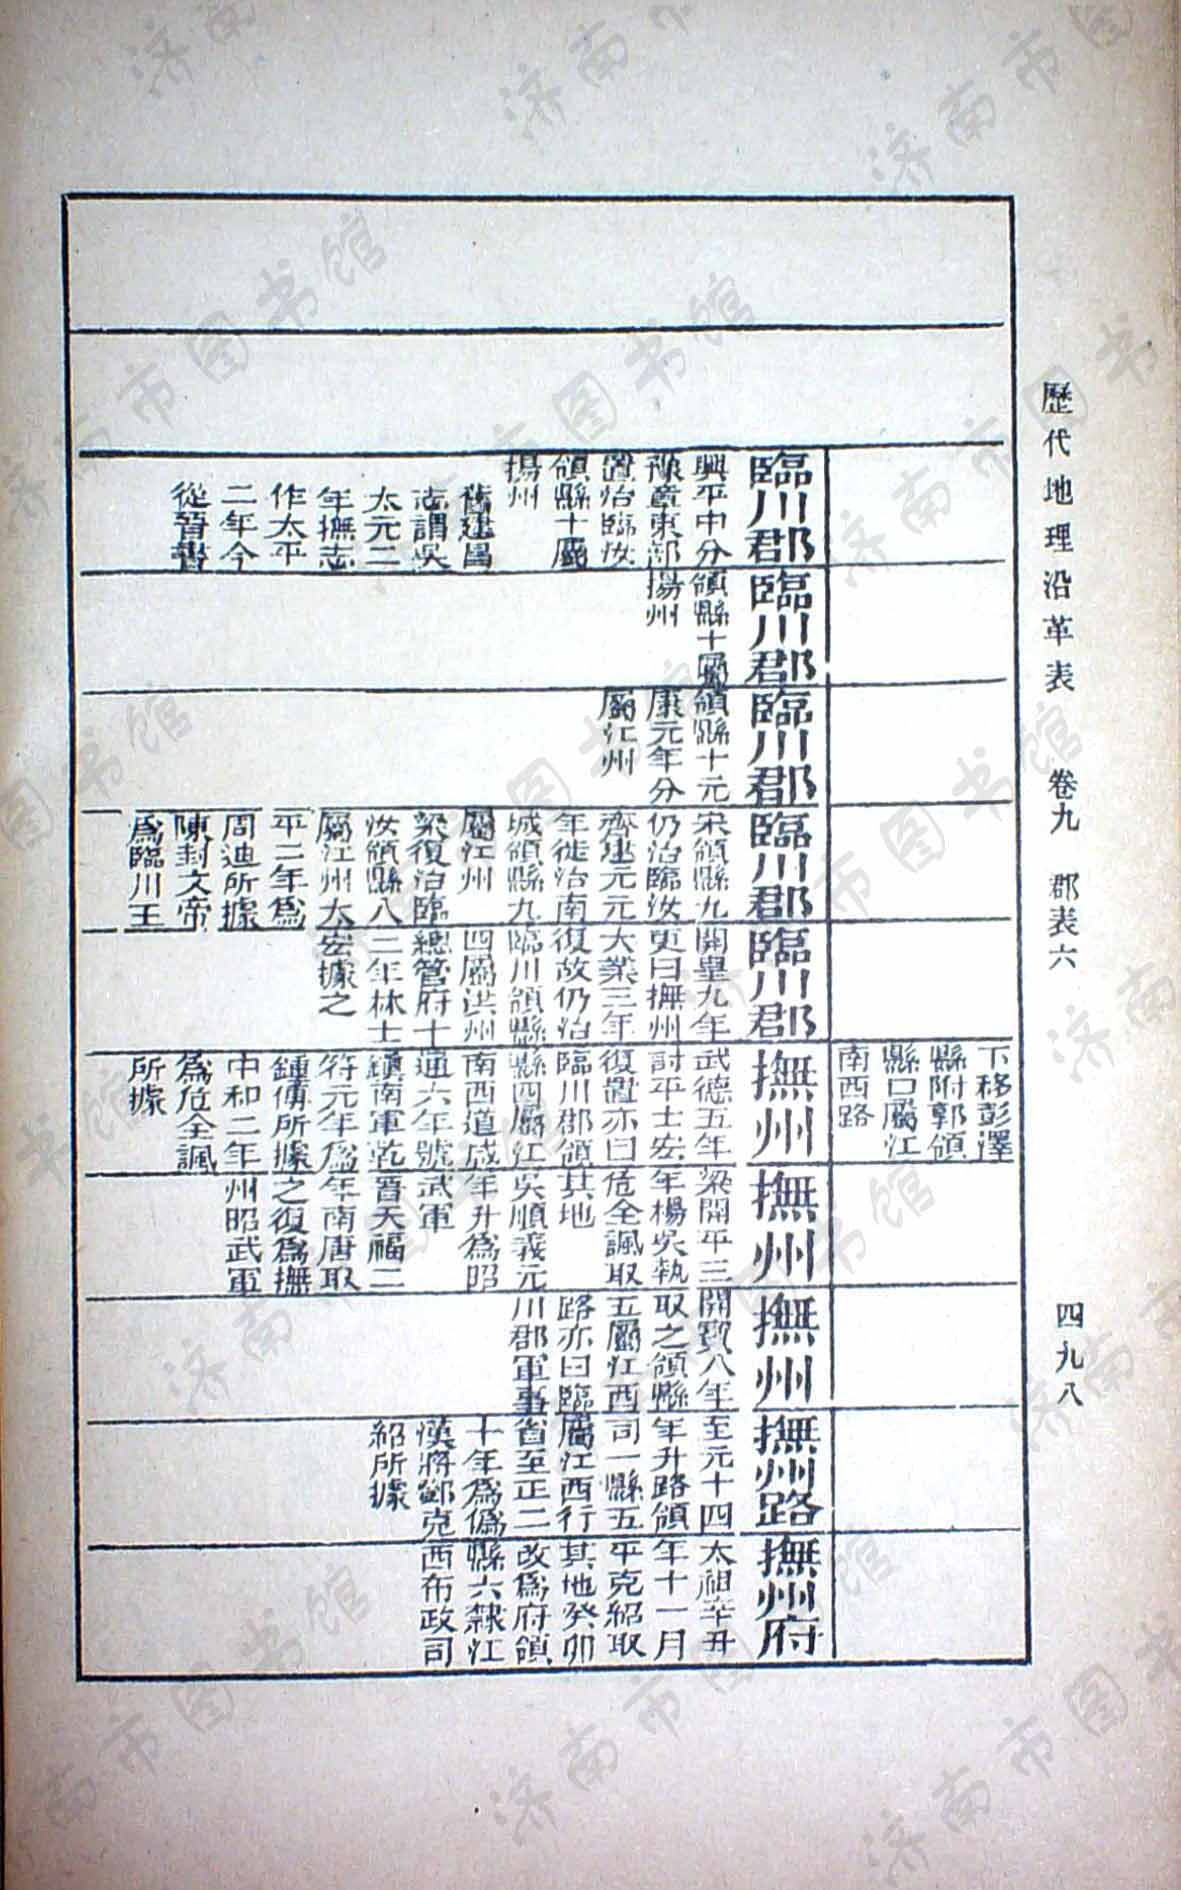 歷代地理沿革表 卷九 郡表六 四九八
下移彭澤
縣附郭領
縣口屬江
南西路
臨川郡
興平中分
豫章東部
置治臨汝
領縣十屬
揚州
舊建昌
志謂吳
太元二
年撫志
作太平
二年今
從晉書
臨川郡
領縣十屬
揚州
臨川郡
領縣十元
康元年分
屬江州
臨川郡
宋領縣九
仍治臨汝
齊建元元
年徙治南
城領縣九
屬江州
梁復治臨
汝領縣八
屬江州太
平二年為
周迪所據
陳封文帝
為臨川王
臨川郡
開皇九年
更曰撫州
大業三年
復故仍治
臨川領縣
四屬洪州
總管府十
二年林士
宏據之
撫州
武德五年
討平士宏
復置亦曰
臨川郡領
縣四屬江
南西道咸
通六年號
鎮南軍乾
符元年為
鍾傳所據
中和二年
為危全諷
所據
撫州
梁開平三
年楊吳執
危全諷取
其地
吳順義元
年升為昭
武軍
晉天福二
年南唐取
之復為撫
州昭武軍
撫州
開寶八年
取之領縣
五屬江西
路亦曰臨
川郡軍事
撫州路
至元十四
年升路領
司一縣五
屬江西行
省至正二
十年為偽
漢將鄧克
紹所據
撫州府
太祖辛丑
年十一月
平克紹取
其地癸卯
改為府領
縣六隸江
西布政司
济南市图书馆